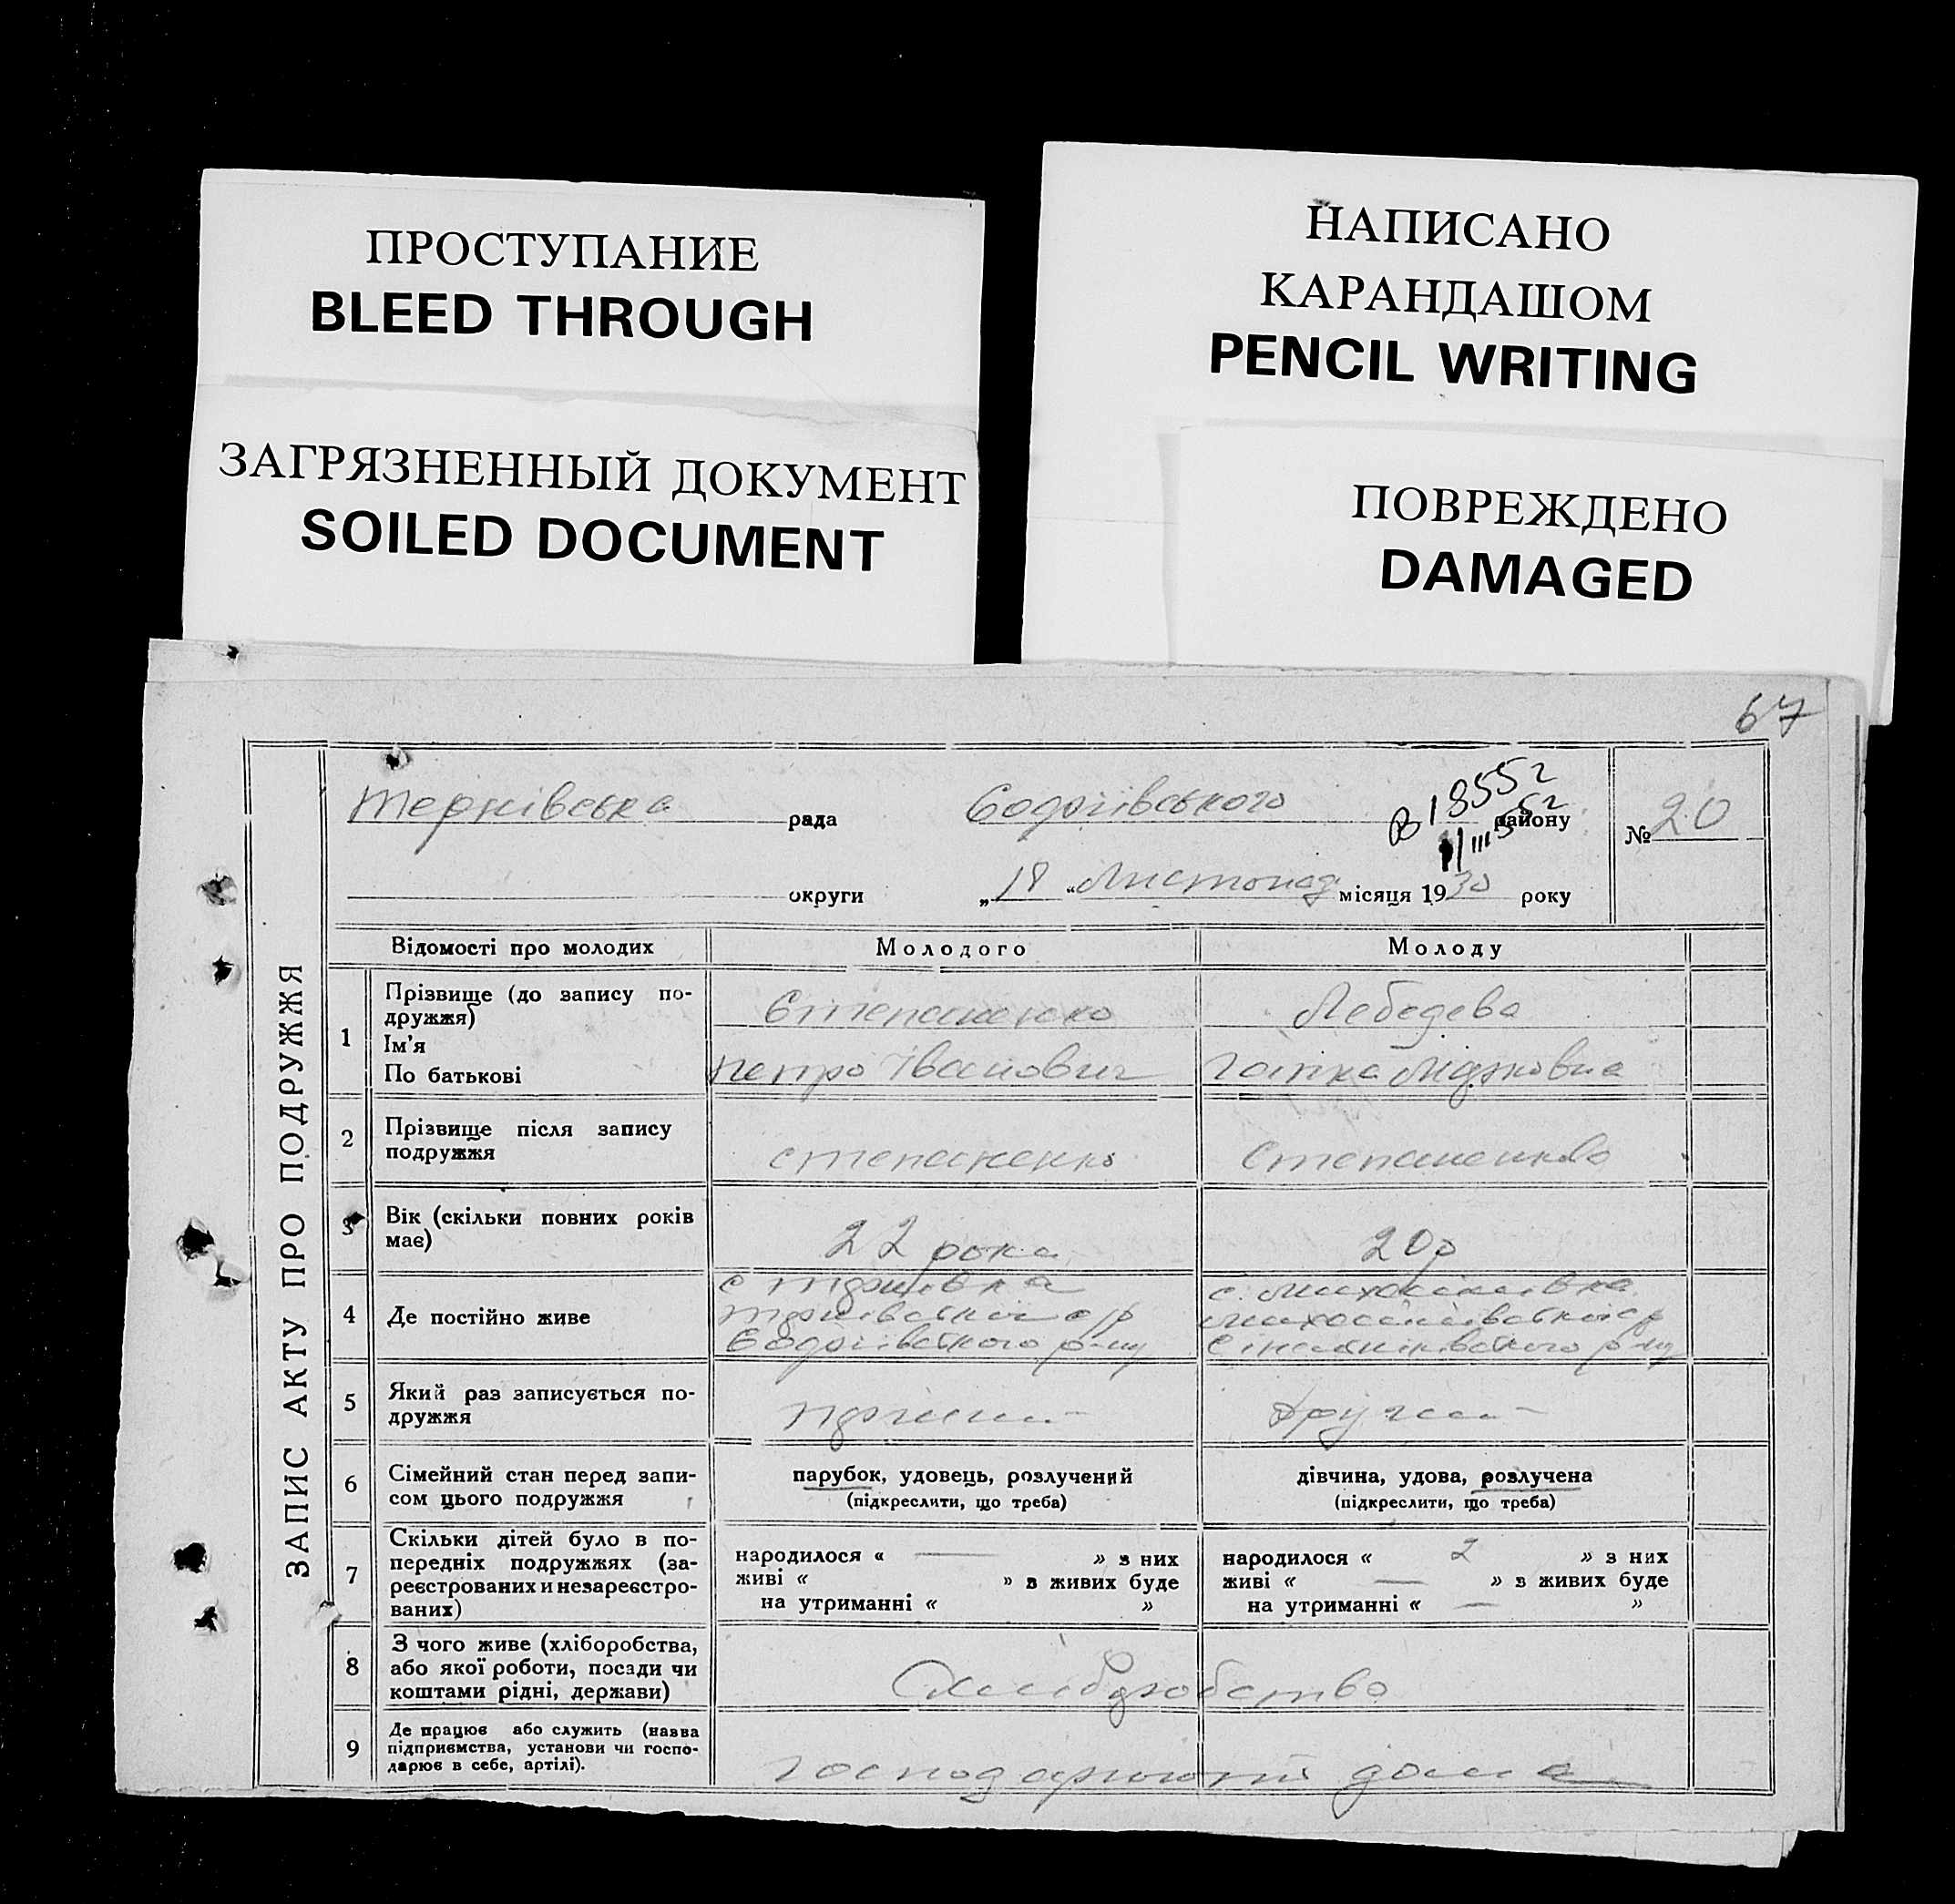 ПРОСТУПАНИЕ
BLEED THROUGH
ЗАГРЯЗНЕННЫЙ ДОКУМЕНТ
SOILED DOCUMENT
НАПИСАНО
КАРАНДАШОМ
PENCIL WRITING
ПОВРЕЖДЕНО
DAMAGED
67
ЗАПИС АКТУ ПРО ПОДРУЖЖЯ
Тернівська рада району
В 18552
№ 20
округи „ 18 “ Листопад місяця 1930 року
Відомості про молодих Молодого Молоду
1 Прізвище (до запису по-
дружжя) Степаненко Лебедева
Ім'я
По батькові Петро Іванович Гапка
2 Прізвище після запису
подружжя Степаненко Степаненко
3 Вік (скільки повних років
має) 22 рока 20 р
4 Де постійно живе
с. Михайлівка
5 Який раз записується по-
дружжя
6 Сімейний стан перед запи-
сом цього подружжя
парубок, удовець, розлучений
(підкреслити, що треба)
дівчина, удова, розлучена
(підкреслити, що треба)
7 Скільки дітей було в по-
передніх подружжях (за-
реєстрованих и незареєстро-
ваних)
народилося « — » з них
живі « » з живих буде
на утриманні « »
народилося « 2 » з них
живі « — » з живих буде
на утриманні « — »
8 З чого живе (хліборобства,
або якої роботи, посади чи
коштами рідні, держави)
9 Де працює або служить (назва
підприємства, установи чи госпо-
дарює в себе, артілі).
дома